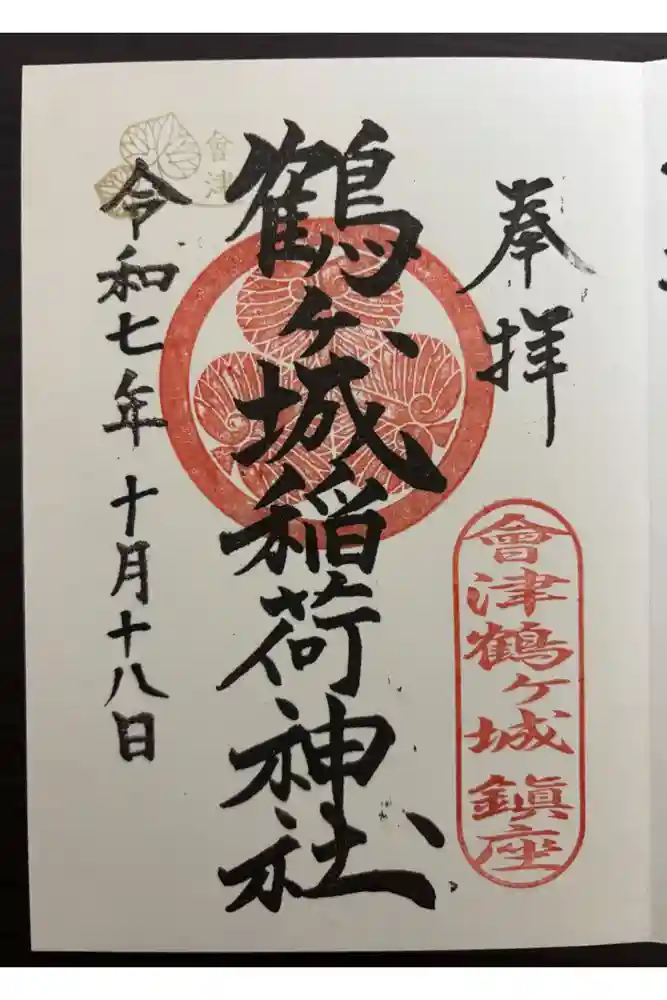 奉拝
會津鶴ヶ城鎮座
鶴ヶ城稲荷神社
會津
令和七年十月十八日